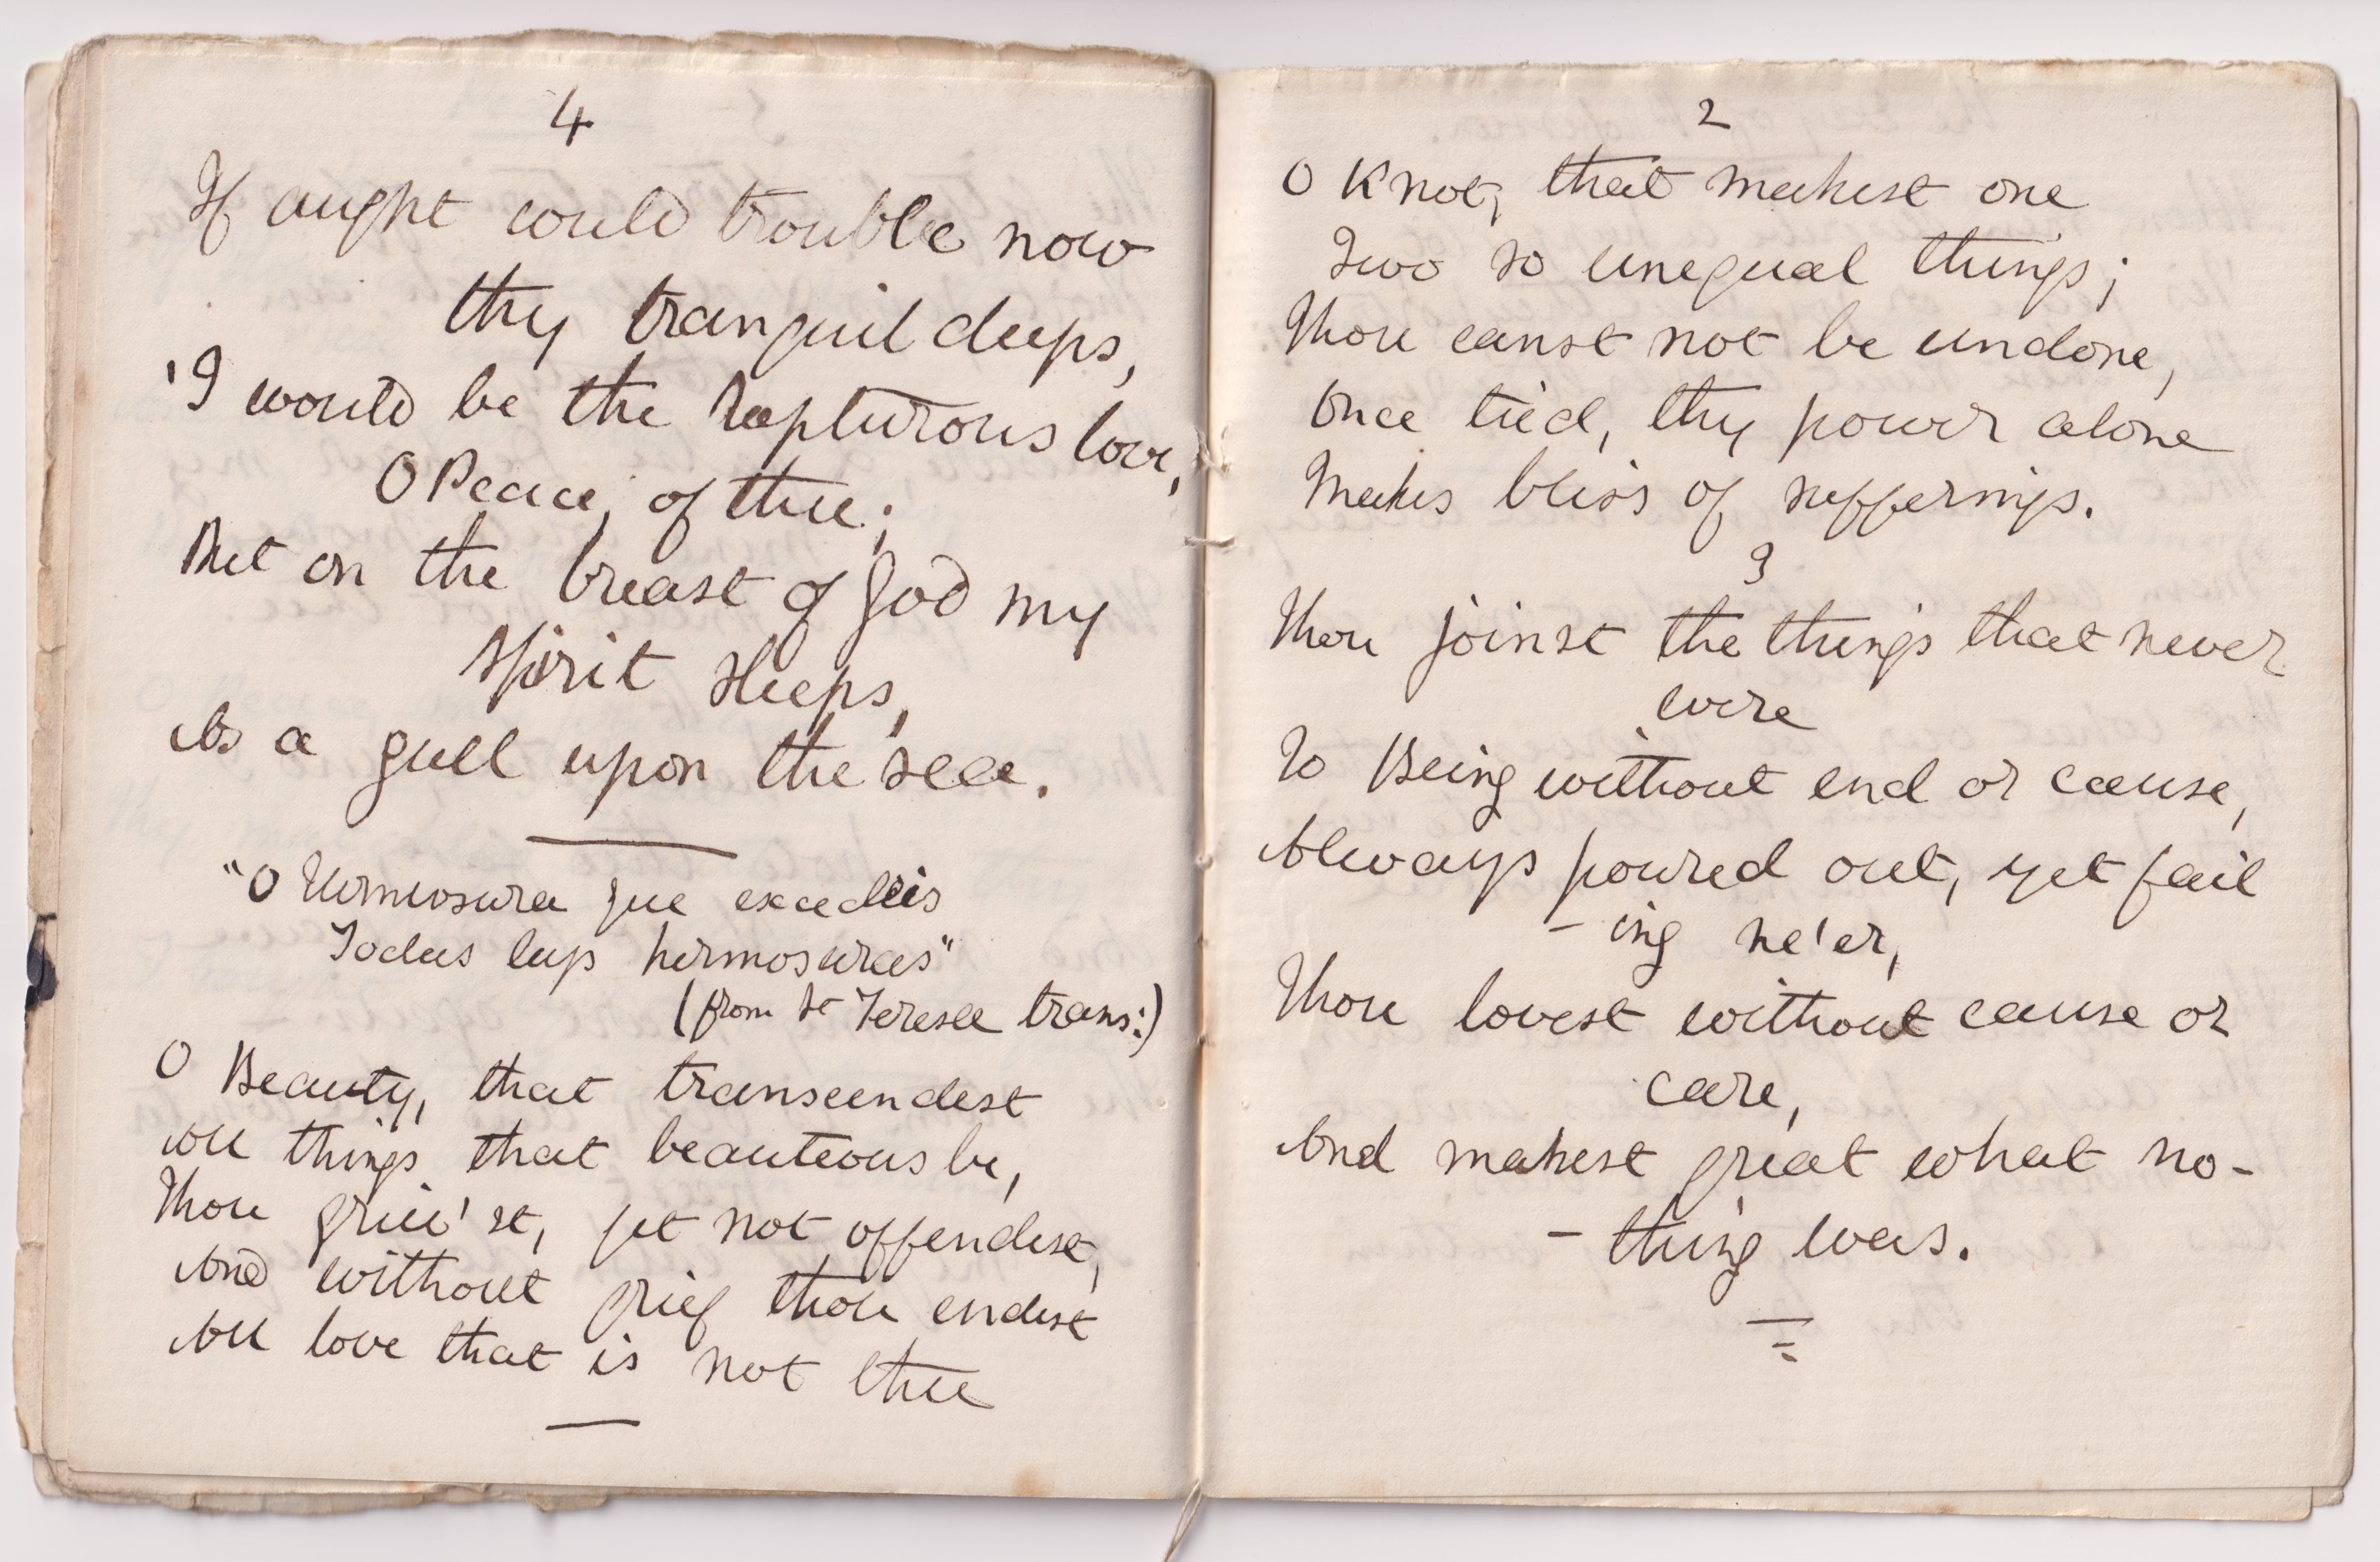 4
If aught could trouble now
thy tranquil deeps,
'I would be the rapturous love,
O Peace, of thee;
But on the breast of God my
spirit sleeps,
As a gull upon the sea.
"O Hermosura que excedéis
Todas las hermosuras"
(from St Teresa trans:)
O Beauty, that transcendest
All things that beauteous be,
Thou griev'st, yet not offendest,
And without grief thou endest
All love that is not thee
2
O Knot, that makest one
Two so unequal things;
Thou canst not be undone,
Once tied, thy power alone
Makes bliss of sufferings.
3
Thou joinst the things that never
were
To Being without end or cause,
Always poured out, yet fail
- ing ne'er,
Thou lovest without cause or
care,
And makest great what no-
- thing was.